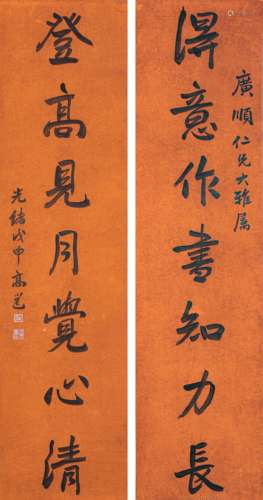 廣順仁兄大雅屬
得意作書知力長
登高見月覺心清
光緒戊申高邕